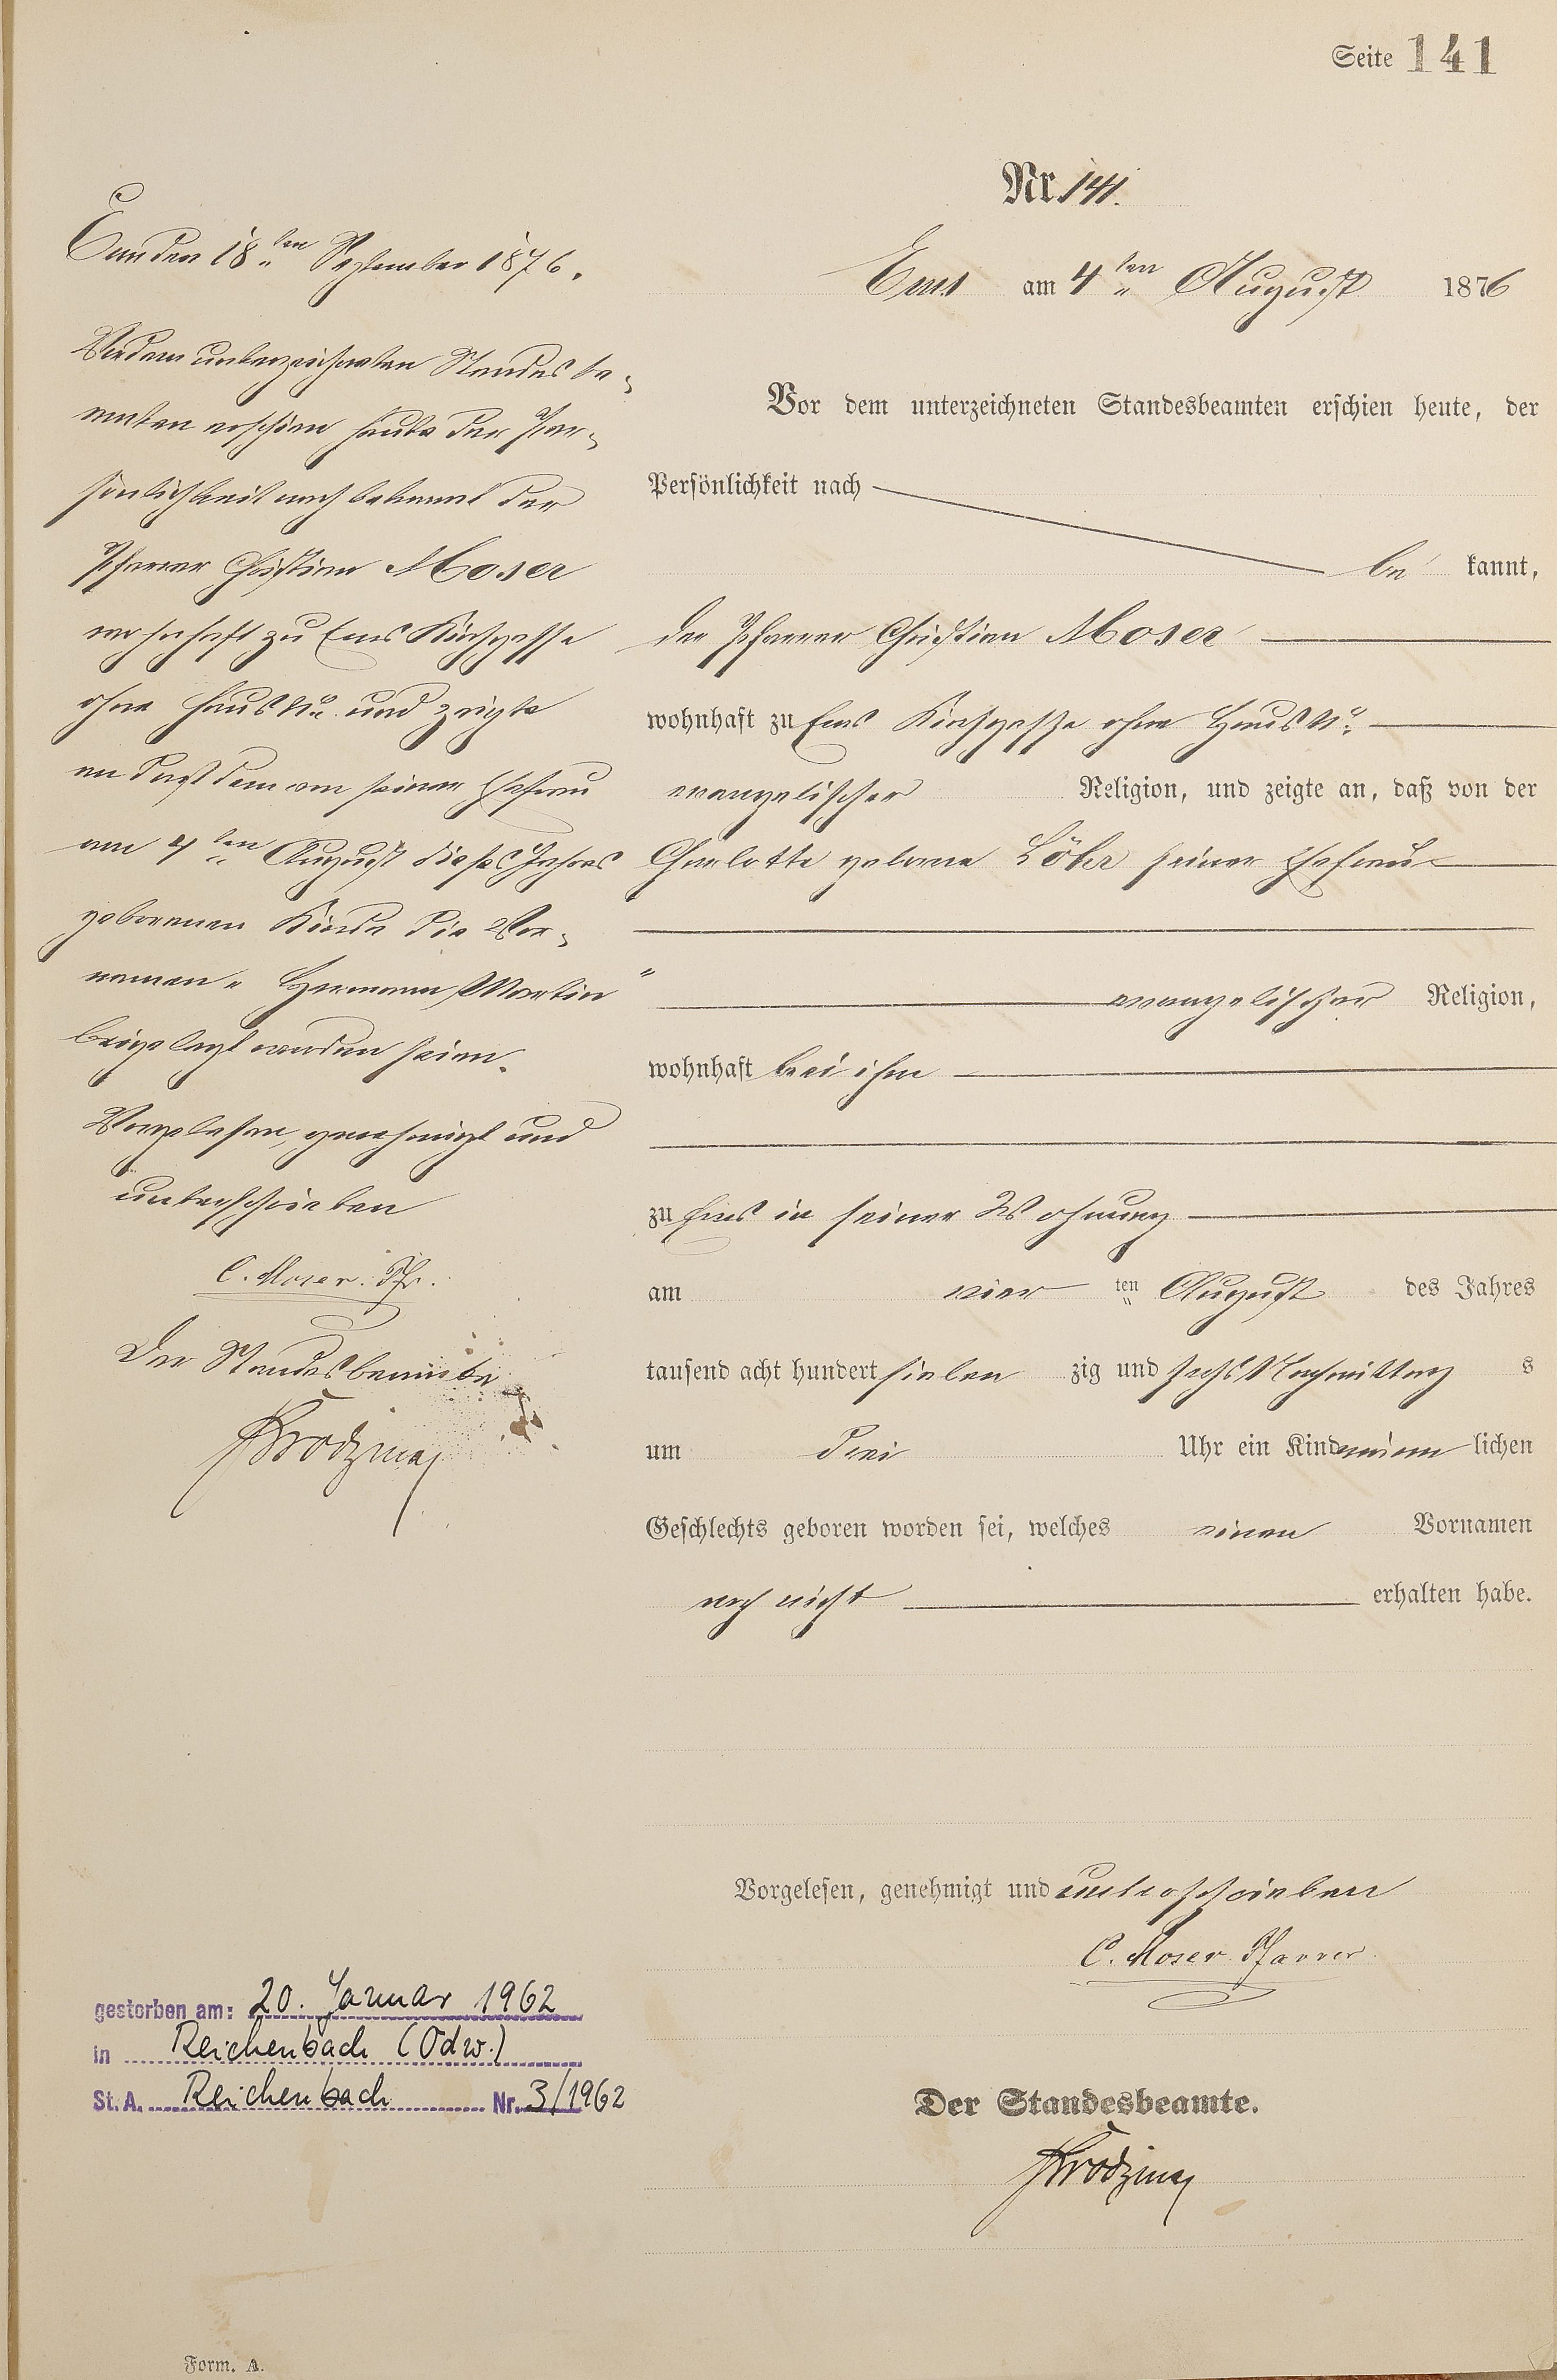 Seite 141
Nr. 141.
Ems am 4ten August 1876
Vor dem unterzeichneten Standesbeamten erschien heute, der
Persönlichkeit nach
be kannt,
der Pfarrer Christian Moser
wohnhaft zu Ems Kirchgasse ohne Haus No.
evangelischer Religion, und zeigte an, daß von der
Charlotte geborne Löhr seiner Ehefrau
evangelischer Religion,
wohnhaft bei ihm
zu Ems in seiner Wohnung
am vier ten August des Jahres
tausend acht hundert sieben zig und sechs Nachmittag s
um drei Uhr ein Kind männ lichen
Geschlechts geboren worden sei, welches einen Vornamen
noch nicht erhalten habe.
Vorgelesen, genehmigt und unterschrieben
C. Moser. Pfarrer.
Der Standesbeamte.
Ems den 18ten September 1876.
Vor dem unterzeichneten Standesbe-
amten erschien heute der Per-
sönlichkeit nach bekannt der
Pfarrer Christian Moser
wohnhaft zu Ems Kirchgasse
ohne Haus No. und zeigte
an daß dem von seiner Ehefrau
am 4ten August dieses Jahres
geborenen Kinde die Vor-
namen "Hermann Martin"
beigelegt worden seien.
Vorgelesen, genehmigt und
unterschrieben
C. Moser. Pfr.
Der Standesbeamte
gestorben am: 20. Januar 1962
in Reichenbach (Odw.)
St. A. Reichenbach Nr. 3/1962
Form. A.